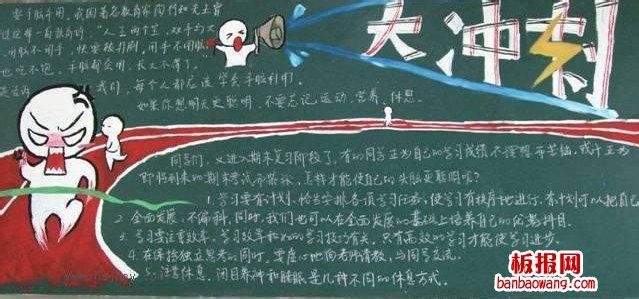 要手脑并用，我国著名教育家陶行知先生曾
过这样一首歌的：“人生两个宝，双手与大
用脑不用手，快要被打倒，用手不用脑，
也吃不饱。手脑都会用，
我们，每个人都应该学会手脑并用。
如果你想明天更聪明，不要忘记运动、营养、休息。
大冲刺
同学们，又进入期末复习阶段了，有的同学正为自己的学习成绩不理想而苦恼，或许正为
即将到来的期末考试而紧张，怎样才能使自己的头脑更聪明呢？
1.学习要有计划，恰当安排各项学习任务，使学习有秩序地进行，有计划可以把自己
2.全面发展，不偏科，同时，我们也可以在全面发展的基础上培养自己的优势科目。
3.学习要注重效率，学习效率和你的学习技巧有关，只有高效的学习才能使学习进步。
4.在保持独立思考的同时，要虚心地向老师请教，与同学交流。
5.注意休息，闭目养神和睡眠是几种不同的休息方式。
板报网
banbaowang.com